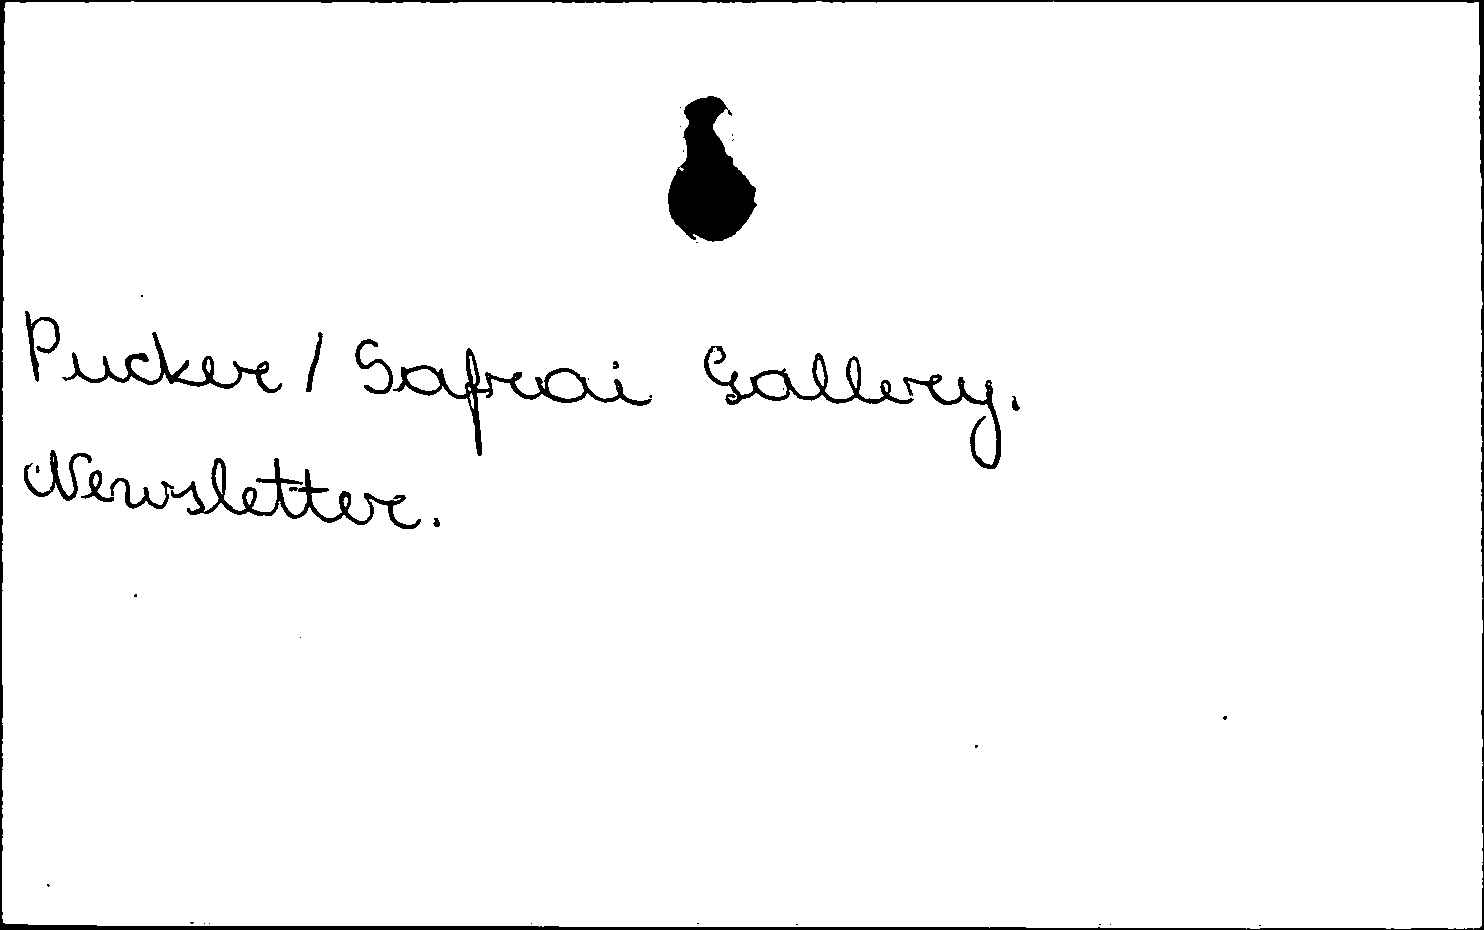 Pucker / Safrai Gallery.
Newsletter.